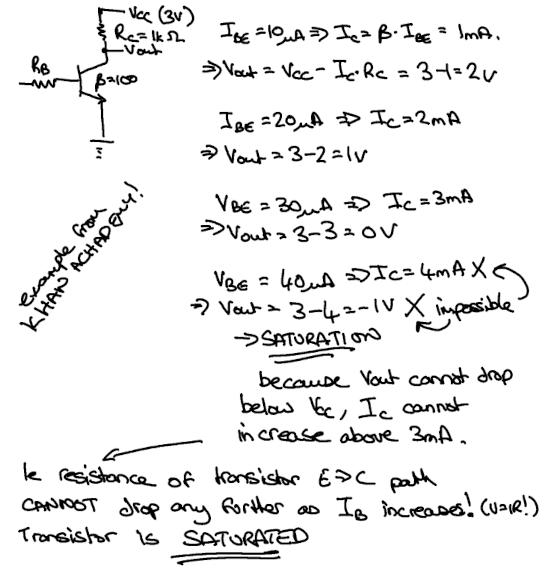 Vcc (3V)
Rc=1kΩ
Vout
RB
β=100
IBE=10μA ⇒ Ic=β·IBE=1mA.
⇒Vout=Vcc-Ic·Rc=3-1=2V
IBE=20μA ⇒ Ic=2mA
⇒ Vout=3-2=1V
VBE=30μA ⇒ Ic=3mA
⇒Vout=3-3=0V
VBE=40μA ⇒Ic=4mA X
⇒ Vout=3-4=-1V X impossible
→SATURATION
example from
KHAN ACHADEMY!
because Vout cannot drop
below Vcc, Ic cannot
increase above 3mA.
Ie resistance of transistor E⇒C path
CANNOT drop any further as IB increases! (V=IR!)
Transistor is SATURATED